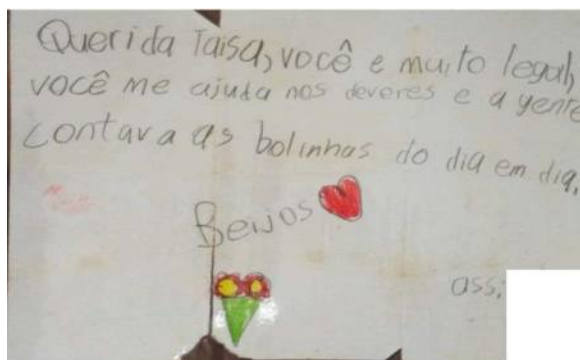 Querida Taisa, você e muito legal,
você me ajuda nos deveres e a gente
contava as bolinhas do dia em dia.
Beijos
ass: